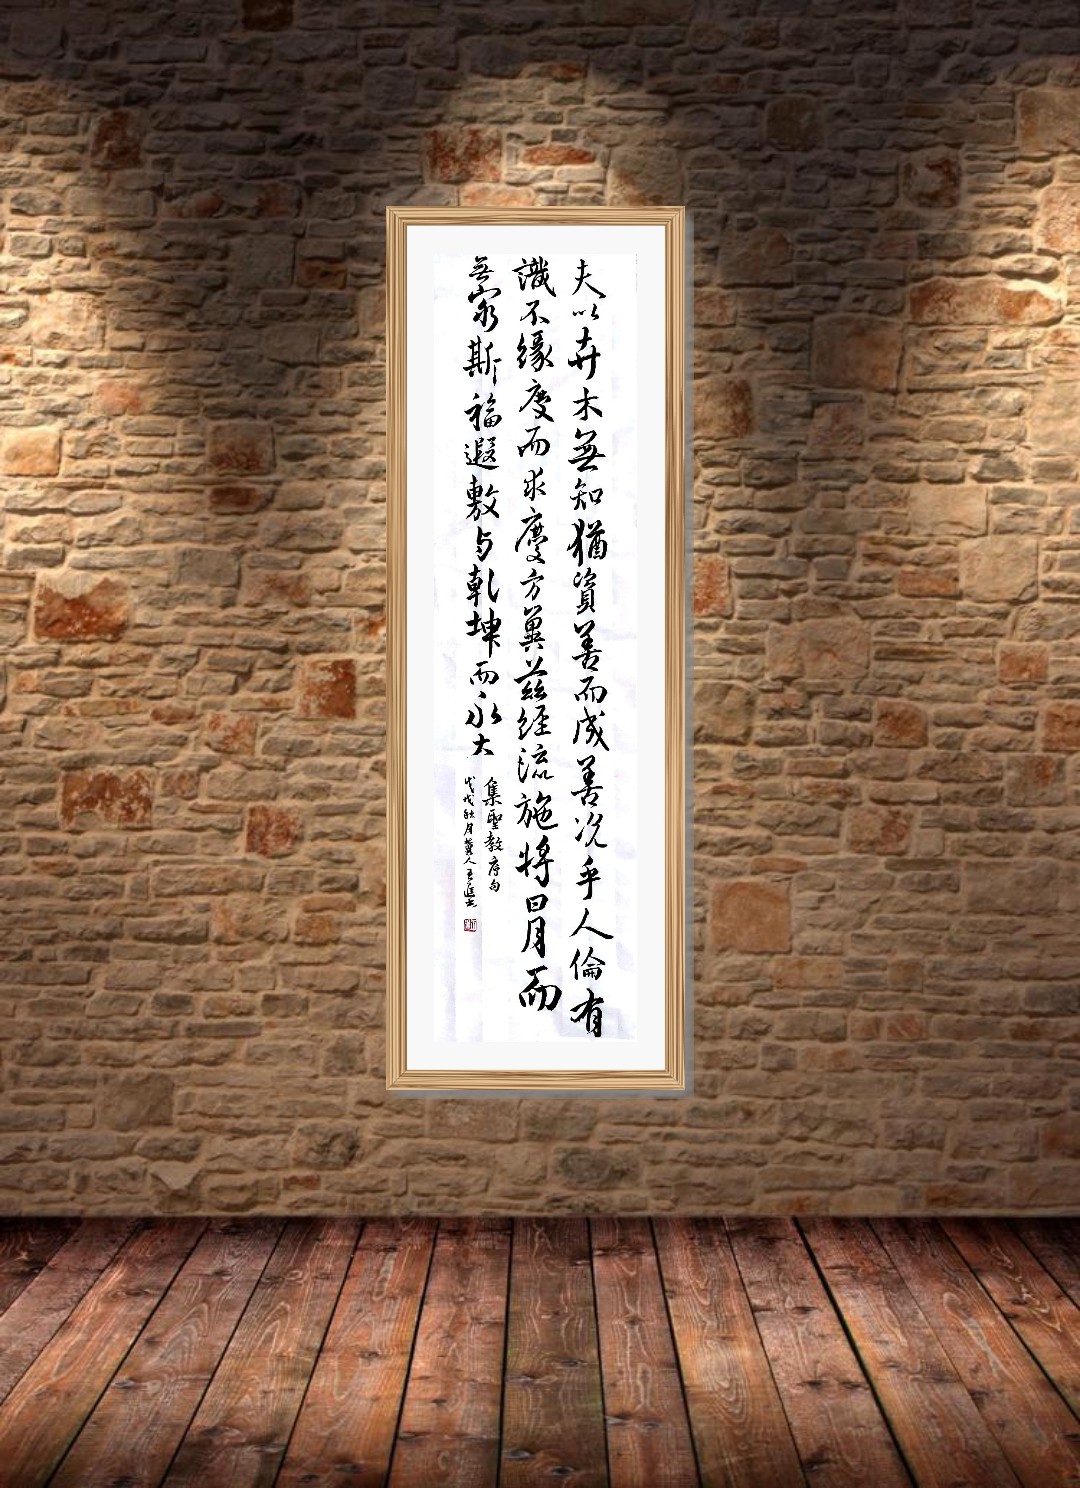 夫以卉木無知猶資善而成善况乎人倫有
識不緣慶而求慶方冀茲經流施將日月而
無窮斯福遐敷与乾坤而永大
集聖教序句
戊戌秋月冀人王進